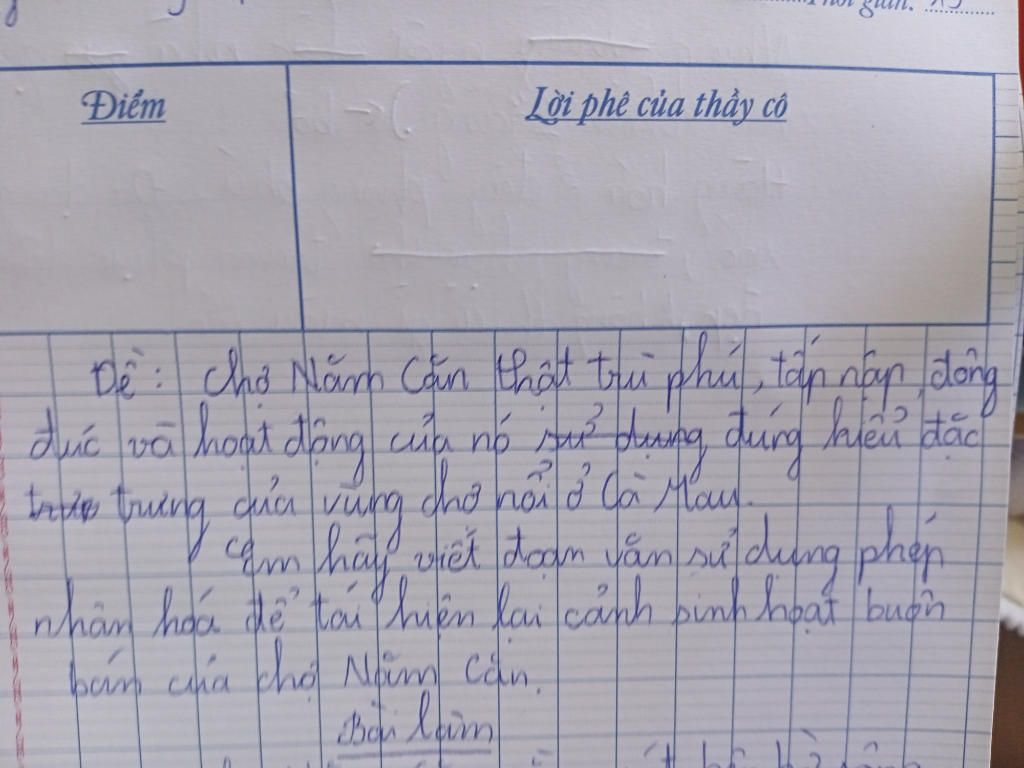 Thời gian:
Điểm
Lời phê của thầy cô
Đề: Chợ Năm Căn thật trù phú, tấp nập, đông
đúc và hoạt động của nó sử dụng đúng kiểu đặc
trưng của vùng chợ nổi ở Cà Mau.
Em hãy viết đoạn văn sử dụng phép
nhân hoá để tái hiện lại cảnh sinh hoạt buôn
bán của chợ Năm Căn.
Bài làm